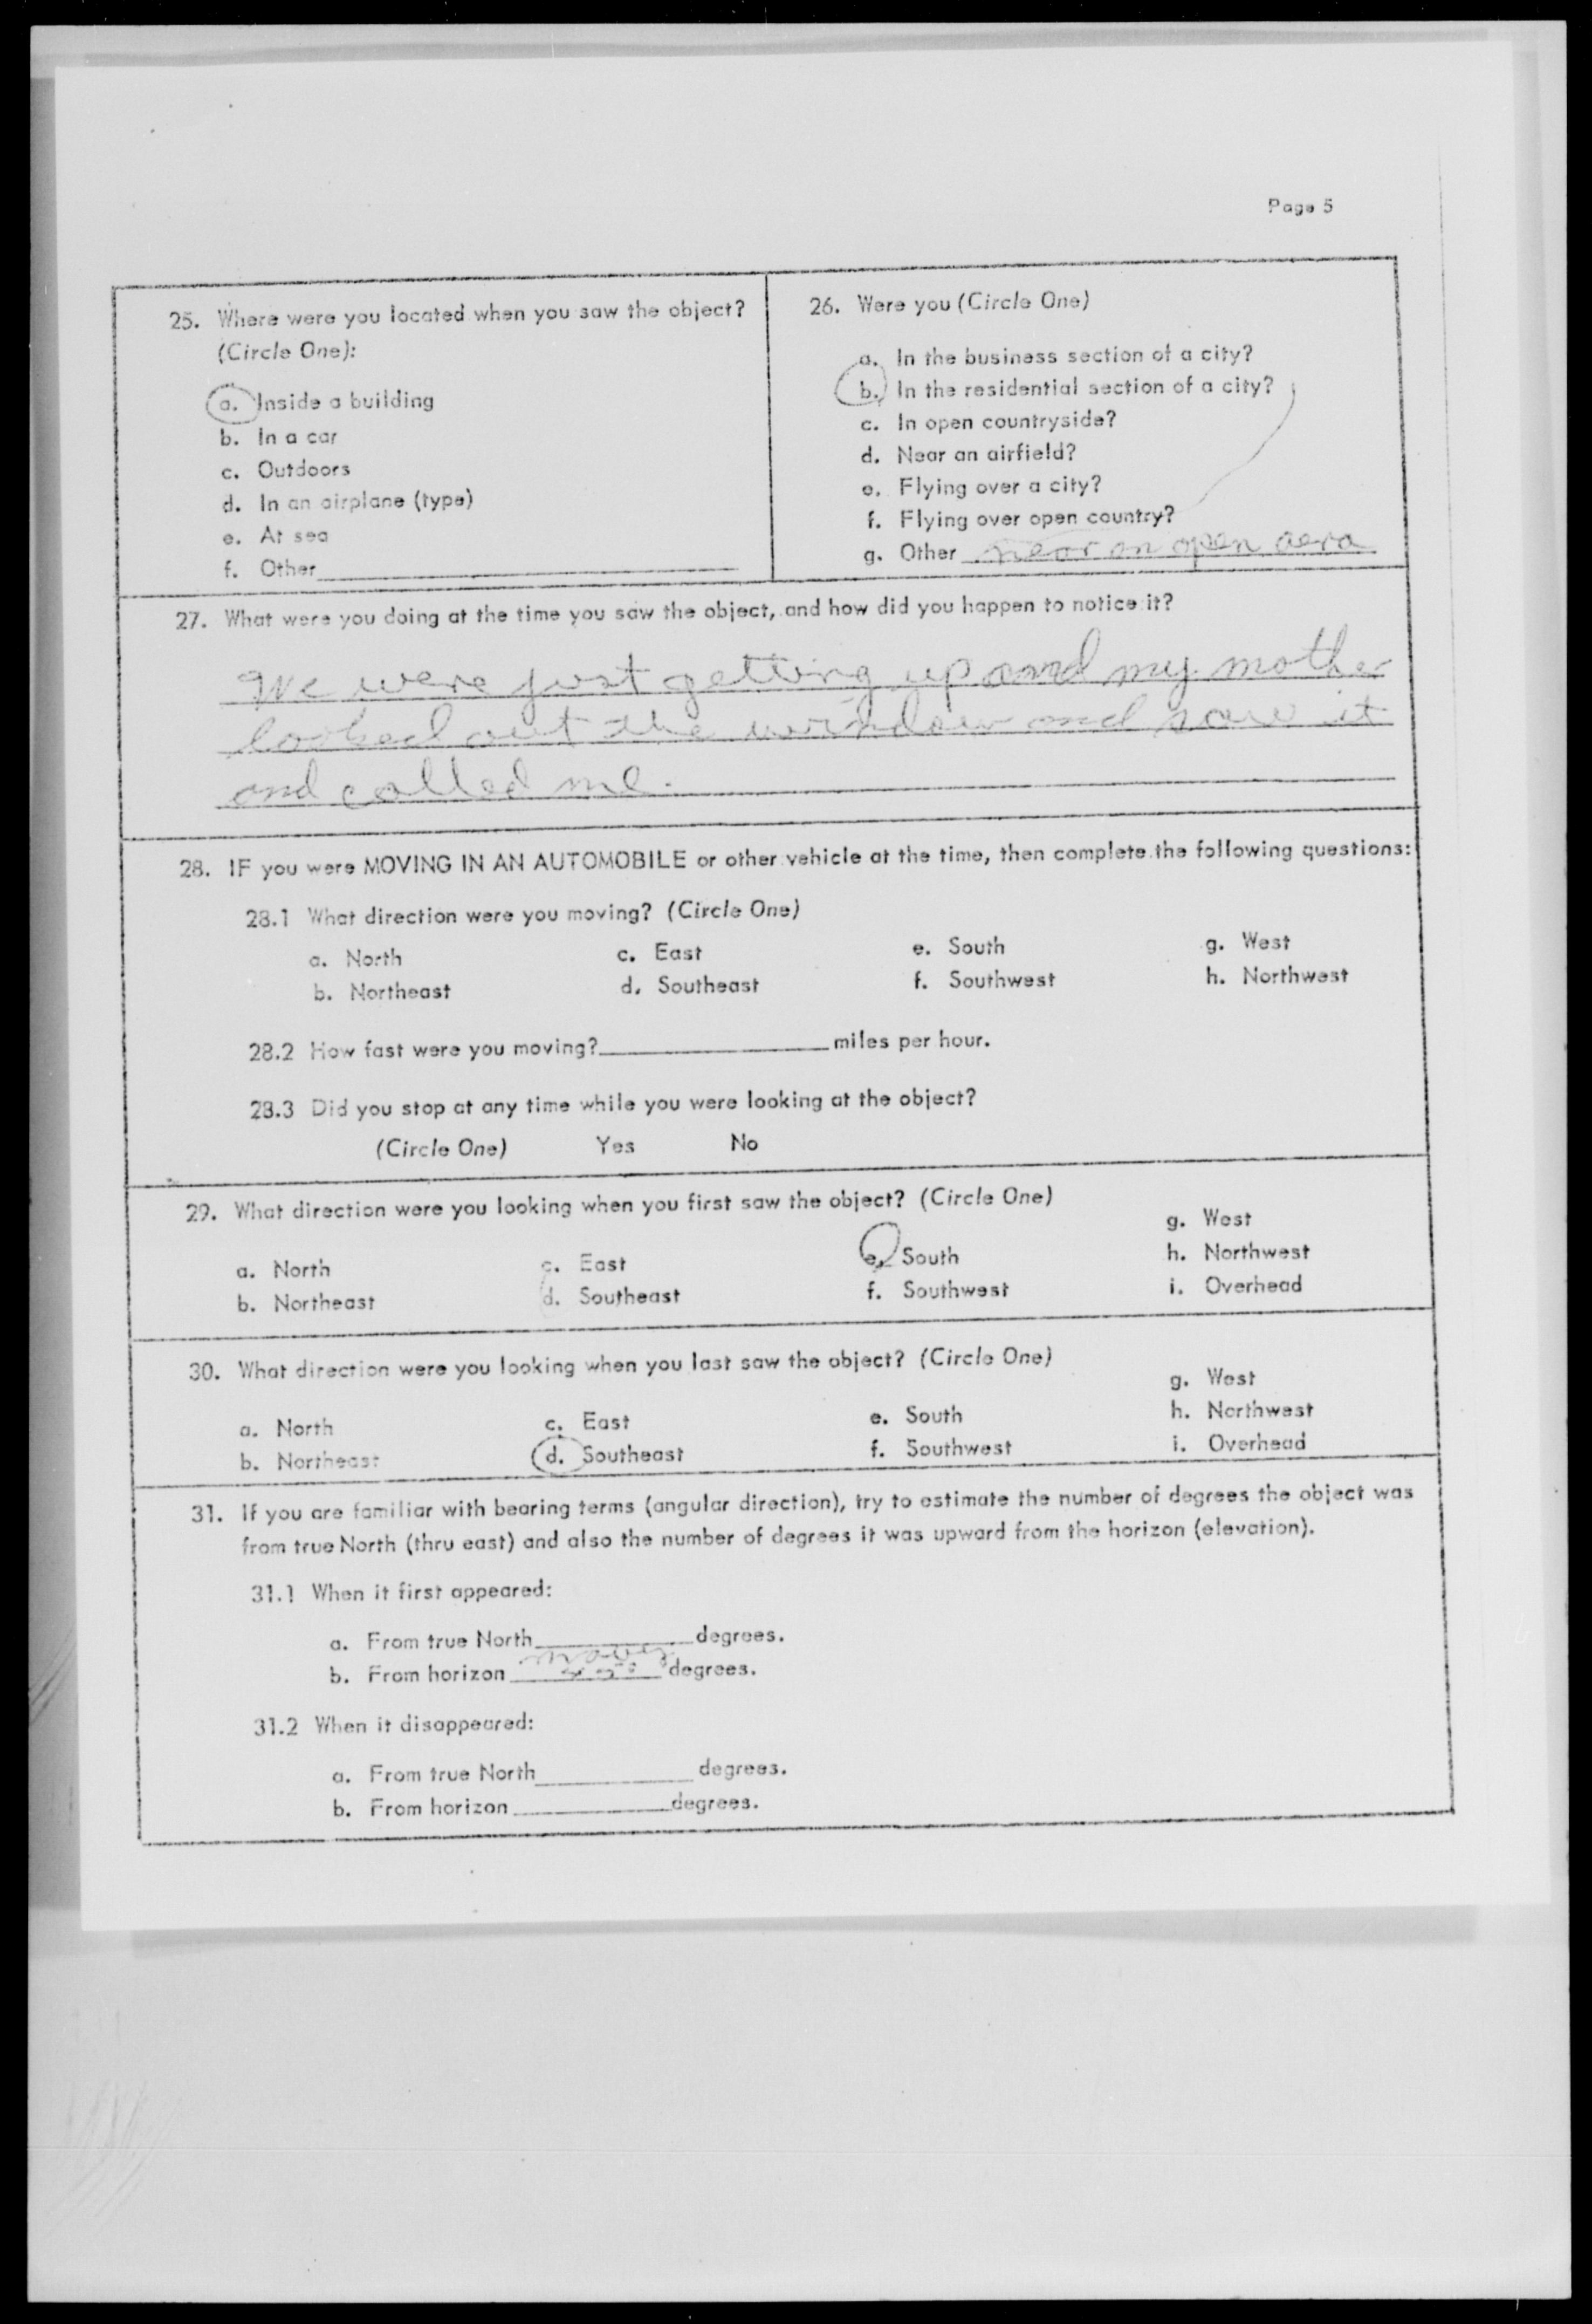 Page 5
25. Where were you located when you saw the object?
(Circle One):
a. Inside a building
b. In a car
c. Outdoors
d. In an airplane (type)
e. At sea
f. Other
26. Were you (Circle One)
a. In the business section of a city?
b. In the residential section of a city?
c. In open countryside?
d. Near an airfield?
e. Flying over a city?
f. Flying over open country?
g. Other near an open aera
27. What were you doing at the time you saw the object, and how did you happen to notice it?
We were just getting up and my mother
looked out the window and saw it
and called me.
28. IF you were MOVING IN AN AUTOMOBILE or other vehicle at the time, then complete the following questions:
28.1 What direction were you moving? (Circle One)
a. North c. East e. South g. West
b. Northeast d. Southeast f. Southwest h. Northwest
28.2 How fast were you moving? miles per hour.
28.3 Did you stop at any time while you were looking at the object?
(Circle One) Yes No
29. What direction were you looking when you first saw the object? (Circle One)
g. West
a. North c. East e. South h. Northwest
b. Northeast d. Southeast f. Southwest i. Overhead
30. What direction were you looking when you last saw the object? (Circle One)
g. West
a. North c. East e. South h. Northwest
b. Northeast d. Southeast f. Southwest i. Overhead
31. If you are familiar with bearing terms (angular direction), try to estimate the number of degrees the object was
from true North (thru east) and also the number of degrees it was upward from the horizon (elevation).
31.1 When it first appeared:
a. From true North degrees.
b. From horizon 45° degrees.
31.2 When it disappeared:
a. From true North degrees.
b. From horizon degrees.